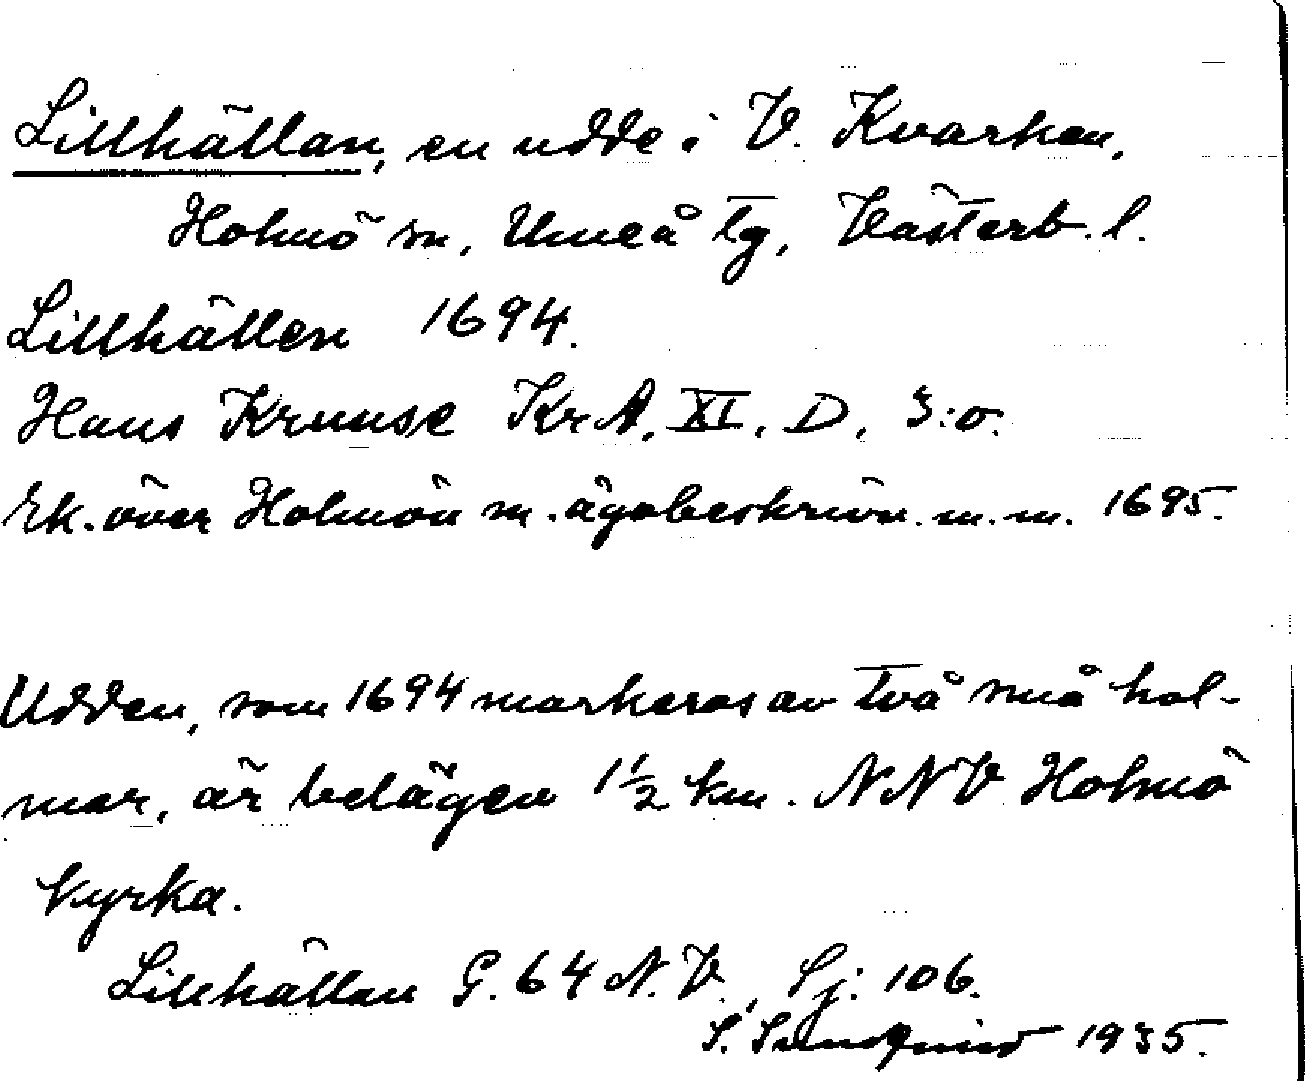 Lillhällan, en udde i V. Kvarken,
Holmö sn, Umeå tg, Västerb. l.
Lillhällen 1694.
Hans Kruuse KrA, XI, D, 3:o.
Ek. över Holmön m. ägobeskrivn. m. m. 1695.
Udden, som 1694 markeras av två små hol-
mar, är belägen 1 1/2 km. NNV Holmö
kyrka.
Lillhällan G. 64 N.V., Sj: 106.
S. Sundqvist 1935.